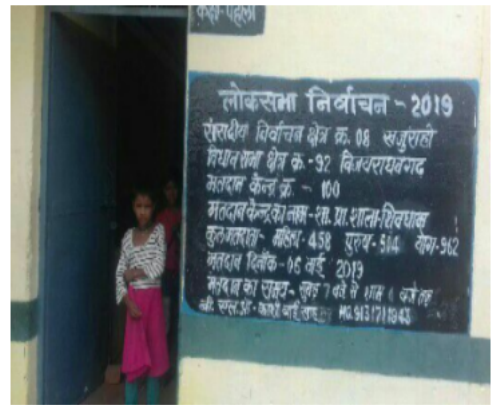 कक्षा-पहली
लोकसभा निर्वाचन - 2019
संसदीय निर्वाचन क्षेत्र क्र. 08 खजुराहो
विधान सभा क्षेत्र क्र. - 92 विजयराघवगढ
मतदान केन्द्र क्र - 100
मतदान केन्द्र का नाम - शा. प्रा. शाला
कुल मतदाता - महिला - 458 पुरुष - 504 योग - 962
मतदान दिनाँक - 06 मई 2019
मतदान का समय - सुबह 7 बजे से शाम 6 बजे तक
बी. एल. ओ -